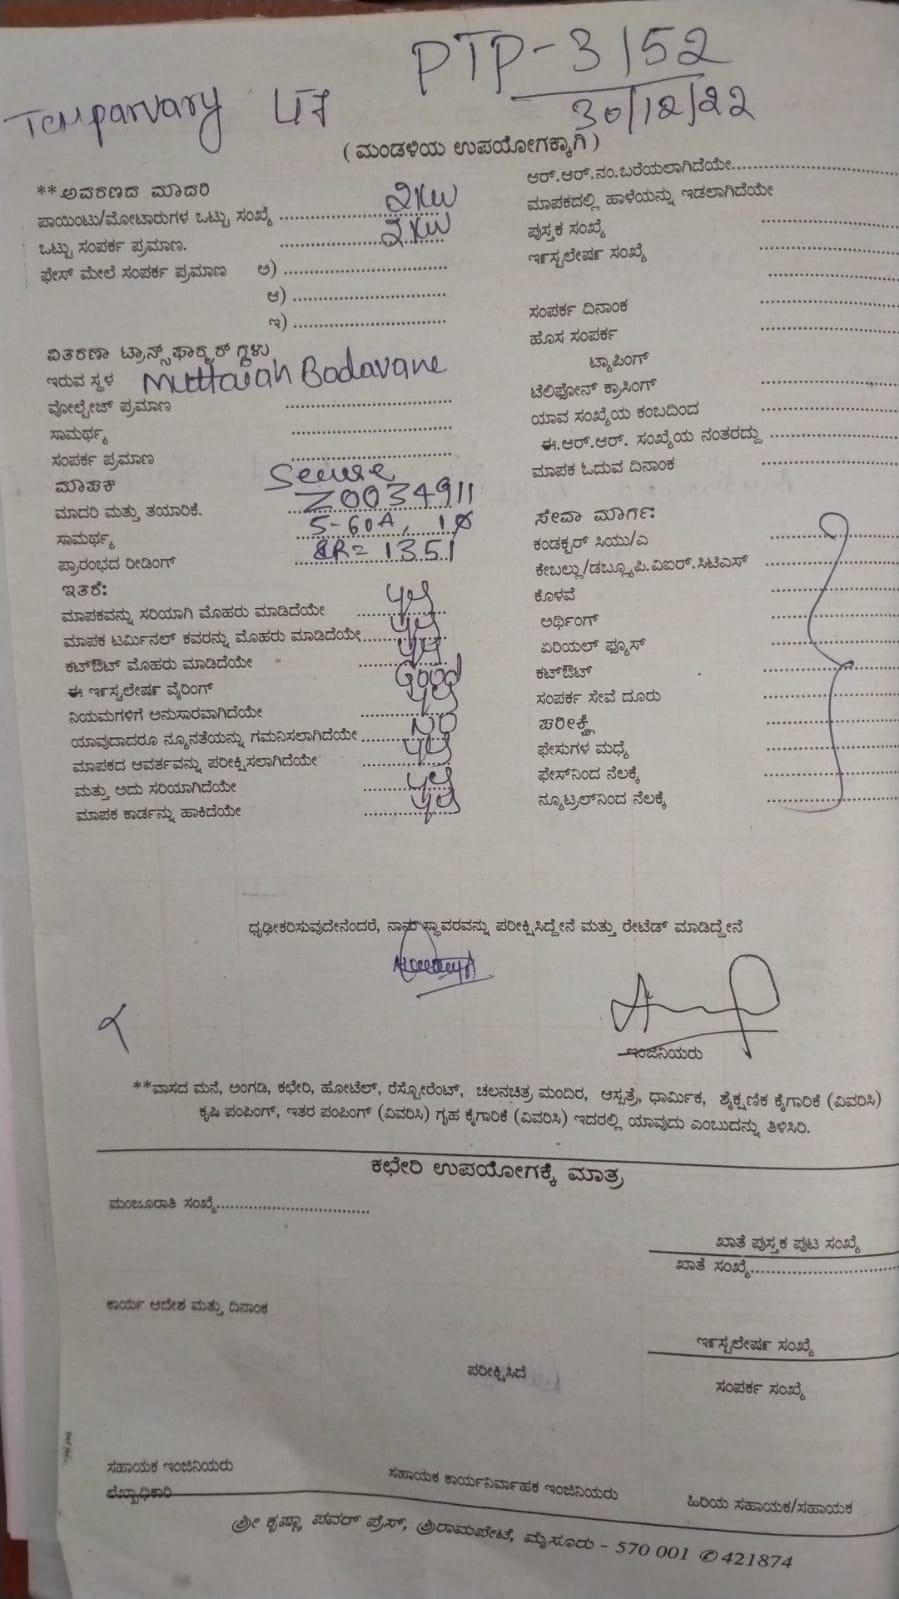 PTP-3152
30/12/22
Temparvary LT7
( ಮಂಡಳಿಯ ಉಪಯೋಗಕ್ಕಾಗಿ )
** ಅವರಣದ ಮಾದರಿ
ಪಾಯಿಂಟು/ಮೋಟಾರುಗಳ ಒಟ್ಟು ಸಂಖ್ಯೆ 2KW
ಒಟ್ಟು ಸಂಪರ್ಕ ಪ್ರಮಾಣ. 2KW
ಫೇಸ್ ಮೇಲೆ ಸಂಪರ್ಕ ಪ್ರಮಾಣ ಅ)
ಆ)
ಇ)
ವಿತರಣಾ ಟ್ರಾನ್ಸ್‌ಫಾರ್ಮರ್ ಗಳು
ಇರುವ ಸ್ಥಳ Muttaiah Badavane
ವೋಲ್ಟೇಜ್ ಪ್ರಮಾಣ
ಸಾಮರ್ಥ್ಯ
ಸಂಪರ್ಕ ಪ್ರಮಾಣ
ಮಾಪಕ Secure
ಮಾದರಿ ಮತ್ತು ತಯಾರಿಕೆ. Z0034911
ಸಾಮರ್ಥ್ಯ 5-60A, 1Ø
ಪ್ರಾರಂಭದ ರೀಡಿಂಗ್ IR= 1351
ಇತರೆ:
ಮಾಪಕವನ್ನು ಸರಿಯಾಗಿ ಮೊಹರು ಮಾಡಿದೆಯೇ yes
ಮಾಪಕ ಟರ್ಮಿನಲ್ ಕವರನ್ನು ಮೊಹರು ಮಾಡಿದೆಯೇ yes
ಕಟ್‌ಔಟ್ ಮೊಹರು ಮಾಡಿದೆಯೇ yes
ಈ ಇನ್‌ಸ್ಟಲೇಷನ್ ವೈರಿಂಗ್ Good
ನಿಯಮಗಳಿಗೆ ಅನುಸಾರವಾಗಿದೆಯೇ yes
ಯಾವುದಾದರೂ ನ್ಯೂನತೆಯನ್ನು ಗಮನಿಸಲಾಗಿದೆಯೇ NO
ಮಾಪಕದ ಆವರ್ತವನ್ನು ಪರೀಕ್ಷಿಸಲಾಗಿದೆಯೇ yes
ಮತ್ತು ಅದು ಸರಿಯಾಗಿದೆಯೇ yes
ಮಾಪಕ ಕಾರ್ಡನ್ನು ಹಾಕಿದೆಯೇ yes
ಆರ್.ಆರ್.ನಂ.ಬರೆಯಲಾಗಿದೆಯೇ
ಮಾಪಕದಲ್ಲಿ ಹಾಳೆಯನ್ನು ಇಡಲಾಗಿದೆಯೇ
ಪುಸ್ತಕ ಸಂಖ್ಯೆ
ಇನ್‌ಸ್ಟಲೇಷನ್ ಸಂಖ್ಯೆ
ಸಂಪರ್ಕ ದಿನಾಂಕ
ಹೊಸ ಸಂಪರ್ಕ
ಟ್ಯಾಪಿಂಗ್
ಟೆಲಿಫೋನ್ ಕ್ರಾಸಿಂಗ್
ಯಾವ ಸಂಖ್ಯೆಯ ಕಂಬದಿಂದ
ಈ.ಆರ್.ಆರ್. ಸಂಖ್ಯೆಯ ನಂತರದ್ದು
ಮಾಪಕ ಓದುವ ದಿನಾಂಕ
ಸೇವಾ ಮಾರ್ಗ:
ಕಂಡಕ್ಟರ್ ಸಿಯು/ಎ
ಕೇಬಲ್ಲು/ಡಬ್ಲ್ಯೂಪಿ.ವಿಐರ್.ಸಿಟಿಎಸ್
ಕೊಳವೆ
ಅರ್ಥಿಂಗ್
ಏರಿಯಲ್ ಫ್ಯೂಸ್
ಕಟ್‌ಔಟ್
ಸಂಪರ್ಕ ಸೇವೆ ದೂರು
ಪರೀಕ್ಷೆ
ಫೇಸುಗಳ ಮಧ್ಯೆ
ಫೇಸ್‌ನಿಂದ ನೆಲಕ್ಕೆ
ನ್ಯೂಟ್ರಲ್‌ನಿಂದ ನೆಲಕ್ಕೆ
ಧೃಢೀಕರಿಸುವುದೇನೆಂದರೆ, ನಾನು ಸ್ಥಾವರವನ್ನು ಪರೀಕ್ಷಿಸಿದ್ದೇನೆ ಮತ್ತು ರೇಟೆಡ್ ಮಾಡಿದ್ದೇನೆ
ಇಂಜಿನಿಯರು
**ವಾಸದ ಮನೆ, ಅಂಗಡಿ, ಕಛೇರಿ, ಹೋಟೆಲ್, ರೆಸ್ಟೋರೆಂಟ್, ಚಲನಚಿತ್ರ ಮಂದಿರ, ಆಸ್ಪತ್ರೆ, ಧಾರ್ಮಿಕ, ಶೈಕ್ಷಣಿಕ ಕೈಗಾರಿಕೆ (ವಿವರಿಸಿ)
ಕೃಷಿ ಪಂಪಿಂಗ್, ಇತರ ಪಂಪಿಂಗ್ (ವಿವರಿಸಿ) ಗೃಹ ಕೈಗಾರಿಕೆ (ವಿವರಿಸಿ) ಇದರಲ್ಲಿ ಯಾವುದು ಎಂಬುದನ್ನು ತಿಳಿಸಿರಿ.
ಕಛೇರಿ ಉಪಯೋಗಕ್ಕೆ ಮಾತ್ರ
ಮಂಜೂರಾತಿ ಸಂಖ್ಯೆ
ಖಾತೆ ಪುಸ್ತಕ ಪುಟ ಸಂಖ್ಯೆ
ಖಾತೆ ಸಂಖ್ಯೆ
ಕಾರ್ಯ ಆದೇಶ ಮತ್ತು ದಿನಾಂಕ
ಇನ್‌ಸ್ಟಲೇಷನ್ ಸಂಖ್ಯೆ
ಪರೀಕ್ಷಿಸಿದೆ
ಸಂಪರ್ಕ ಸಂಖ್ಯೆ
ಸಹಾಯಕ ಇಂಜಿನಿಯರು
ಲೆಖ್ಖಾಧಿಕಾರಿ
ಸಹಾಯಕ ಕಾರ್ಯನಿರ್ವಾಹಕ ಇಂಜಿನಿಯರು
ಹಿರಿಯ ಸಹಾಯಕ/ಸಹಾಯಕ
ಶ್ರೀ ಕೃಷ್ಣಾ ಪವರ್ ಪ್ರೆಸ್, ಶ್ರೀರಾಮಪೇಟೆ, ಮೈಸೂರು - 570 001 ✆ 421874